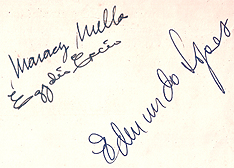 Maracy Mello
Egydio Eccio
Edmundo Lopes